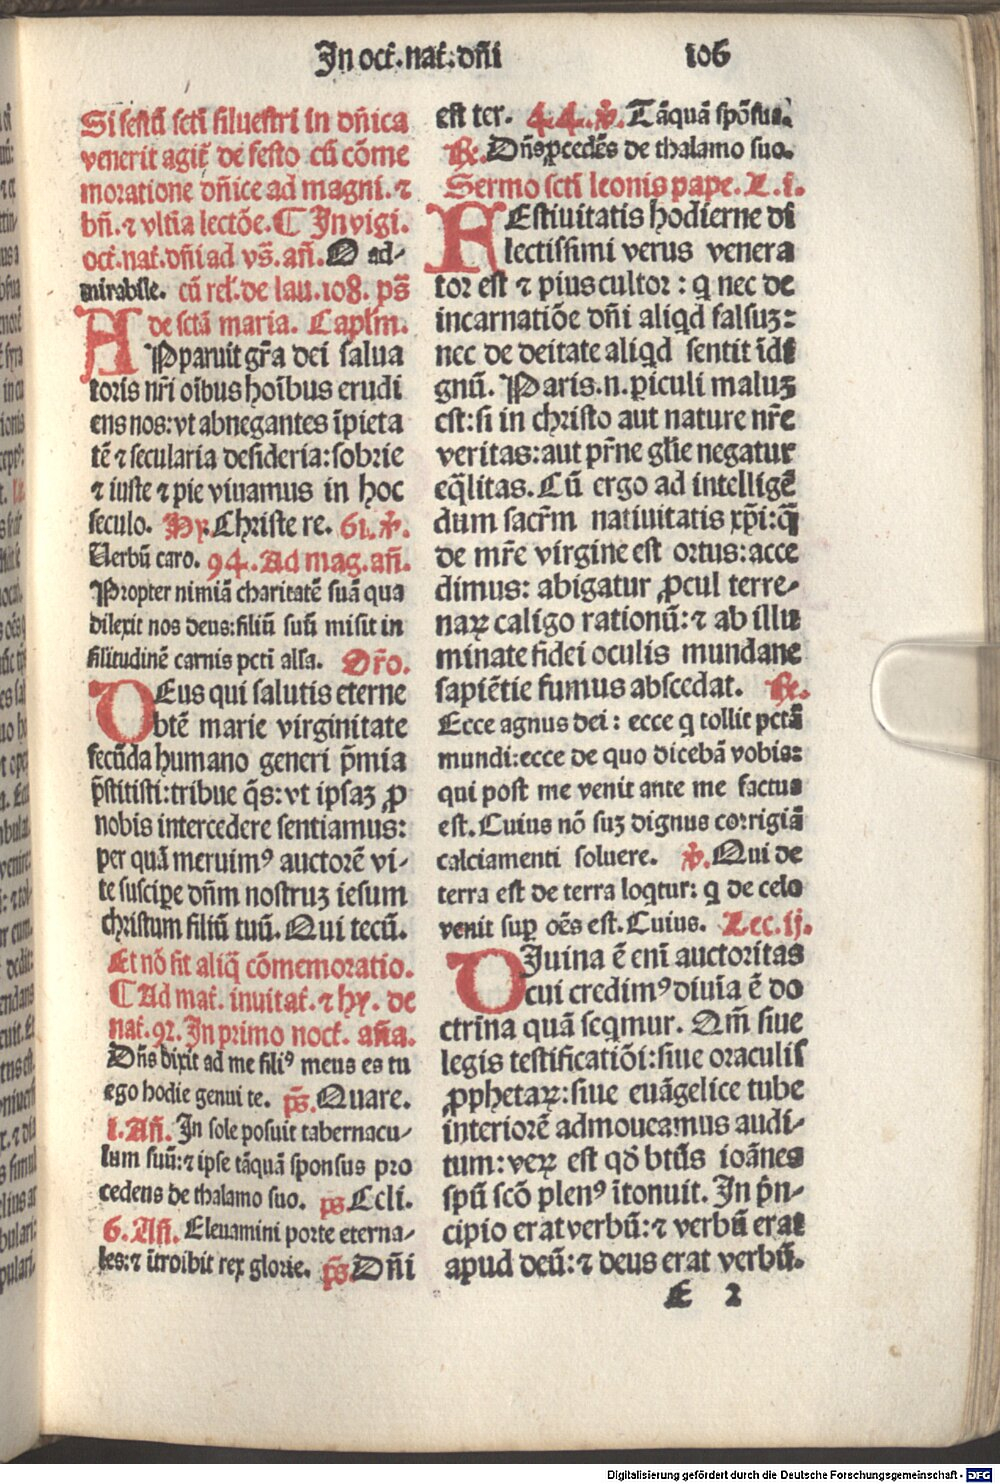 In oct̄.nat̄.dñi 106
Si festū scti siluestri in dñica
venerit agit̄ de festo cū cōme
moratione dñice ad magni. ⁊
bñ. ⁊ vltīa lectōe. ℂ In vigi.
oct̄.nat̄.dñi ad vs̄.añ. O ad-
mirabile. cū rel̄.de lau.108. ps̄
de sctā maria. Capl̄m.
APparuit gr̄a dei salua
toris nr̄i oībus hoībus erudi
ens nos:vt abnegantes īpieta
tē ⁊ secularia desideria:sobrie
⁊ iuste ⁊ pie viuamus in hoc
seculo. Hy. Christe re. 61. ℣.
Uerbū caro. 94. Ad mag.añ.
Propter nimiā charitatē suā qua
dilexit nos deus:filiū suū misit in
silitudinē carnis pcti alsa. Or̄o.
DEus qui salutis eterne
btē marie virginitate
fecūda humano generi p̄mia
p̄stitisti:tribue q̄s:vt ipsaꝫ ꝓ
nobis intercedere sentiamus:
per quā meruimꝰ auctorē vi-
te suscipe dñm nostruꝫ iesum
christum filiū tuū. Qui tecū.
Et nō fit aliq̄ cōmemoratio.
ℂ Ad mat̄. inuitat̄. ⁊ hy. de
nat̄.92. In primo noct̄. aña.
Dñs dixit ad me filiꝰ meus es tu
ego hodie genui te. ps̄. Quare.
1. Añ. In sole posuit tabernacu-
lum suū:⁊ ipse tāquā sponsus pro
cedens de thalamo suo. ps Celi.
6. Añ. Eleuamini porte eterna-
les:⁊ ītroibit rex glorie. ps̄. Dñi
est ter. 44. ℣. Tāquā spōsus.
℟. Dñs ꝓcedēs de thalamo suo.
Sermo scti leonis pape. L. i.
FEstiuitatis hodierne di
lectissimi verus venera
tor est ⁊ pius cultor : q nec de
incarnatiōe dñi aliqd falsuꝫ:
nec de deitate aliqd sentit īdi
gnū. Paris.n.ꝑiculi maluꝫ
est:si in christo aut nature nr̄e
veritas:aut pr̄ne gl̄ie negatur
eq̄litas. Cū ergo ad intelligē
dum sacr̄m natiuitatis xp̄i:q̄
de mr̄e virgine est ortus:acce
dimus: abigatur ꝓcul terre-
naꝝ caligo rationū:⁊ ab illu
minate fidei oculis mundane
sapiētie fumus abscedat. ℟.
Ecce agnus dei : ecce q tollit pctā
mundi:ecce de quo dicebā vobis:
qui post me venit ante me factus
est. Cuius nō suꝫ dignus corrigiā
calciamenti soluere. ℣. Qui de
terra est de terra loqtur: q de celo
venit suꝑ oēs est. Cuius. Lec.ij.
DIuina ē eni auctoritas
cui credimꝰ diuīa ē do
ctrina quā seqmur. Qm̄ siue
legis testificatiōi:siue oraculis
ꝓphetaꝝ:siue euāgelice tube
interiorē admoueamus audi-
tum:veꝝ est qd̄ btūs ioānes
spū scō plenꝰ ītonuit. In p̄n-
cipio erat verbū:⁊ verbū erat
apud deū:⁊ deus erat verbū.
E 2
Digitalisierung gefördert durch die Deutsche Forschungsgemeinschaft - DFG